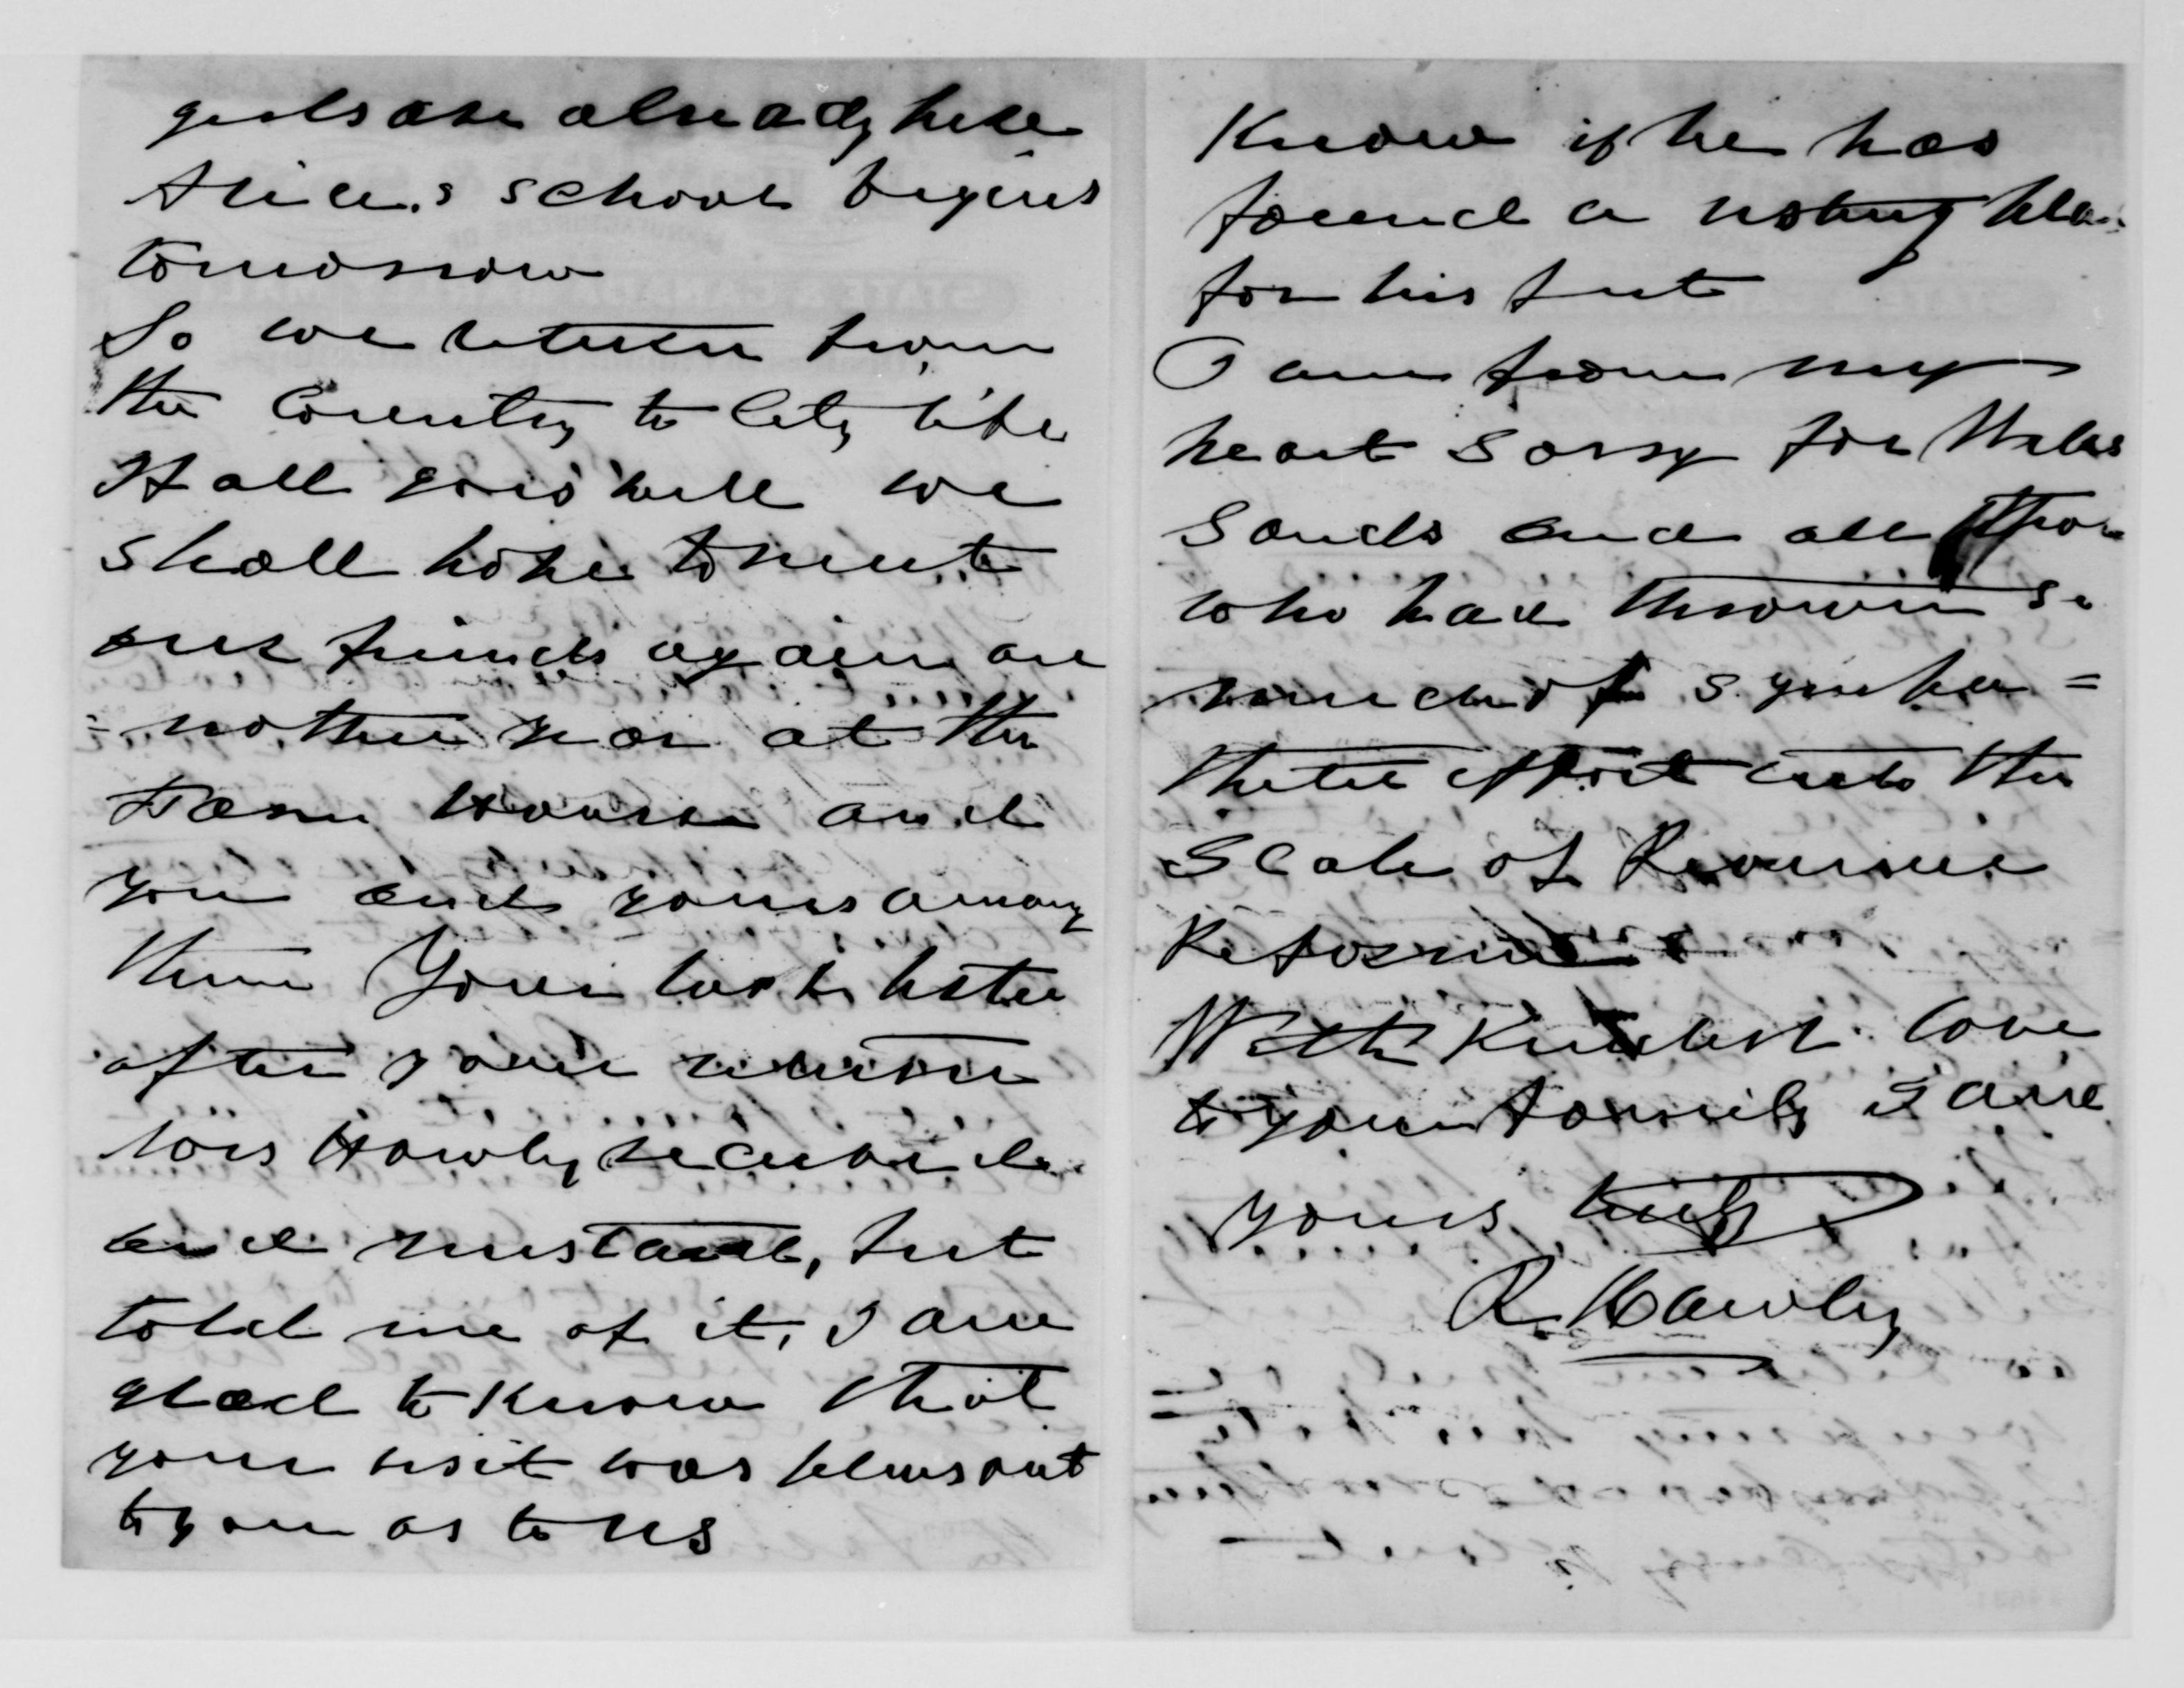 girls are already here
Alice,s school begins
tomorrow
So we return from
the Country to City life
If all goes well we
shall hope to meet
our friends again an
=nother year at the
Farm House and
you and yours among
them Your last letter
after your return
Mrs Hawley received
and mislaid, but
told me of it, I am
glad to know that
your visit was pleasant
to you as to us
Know if he has
found a resting place
for his feet
I am from my
heart sorry for
Sands and all those
who had thrown so
much of sympa=
thetic effort into the
Scale of Revenue
Reform
With Kindest love
to your family I am
yours truly
R. Hawley